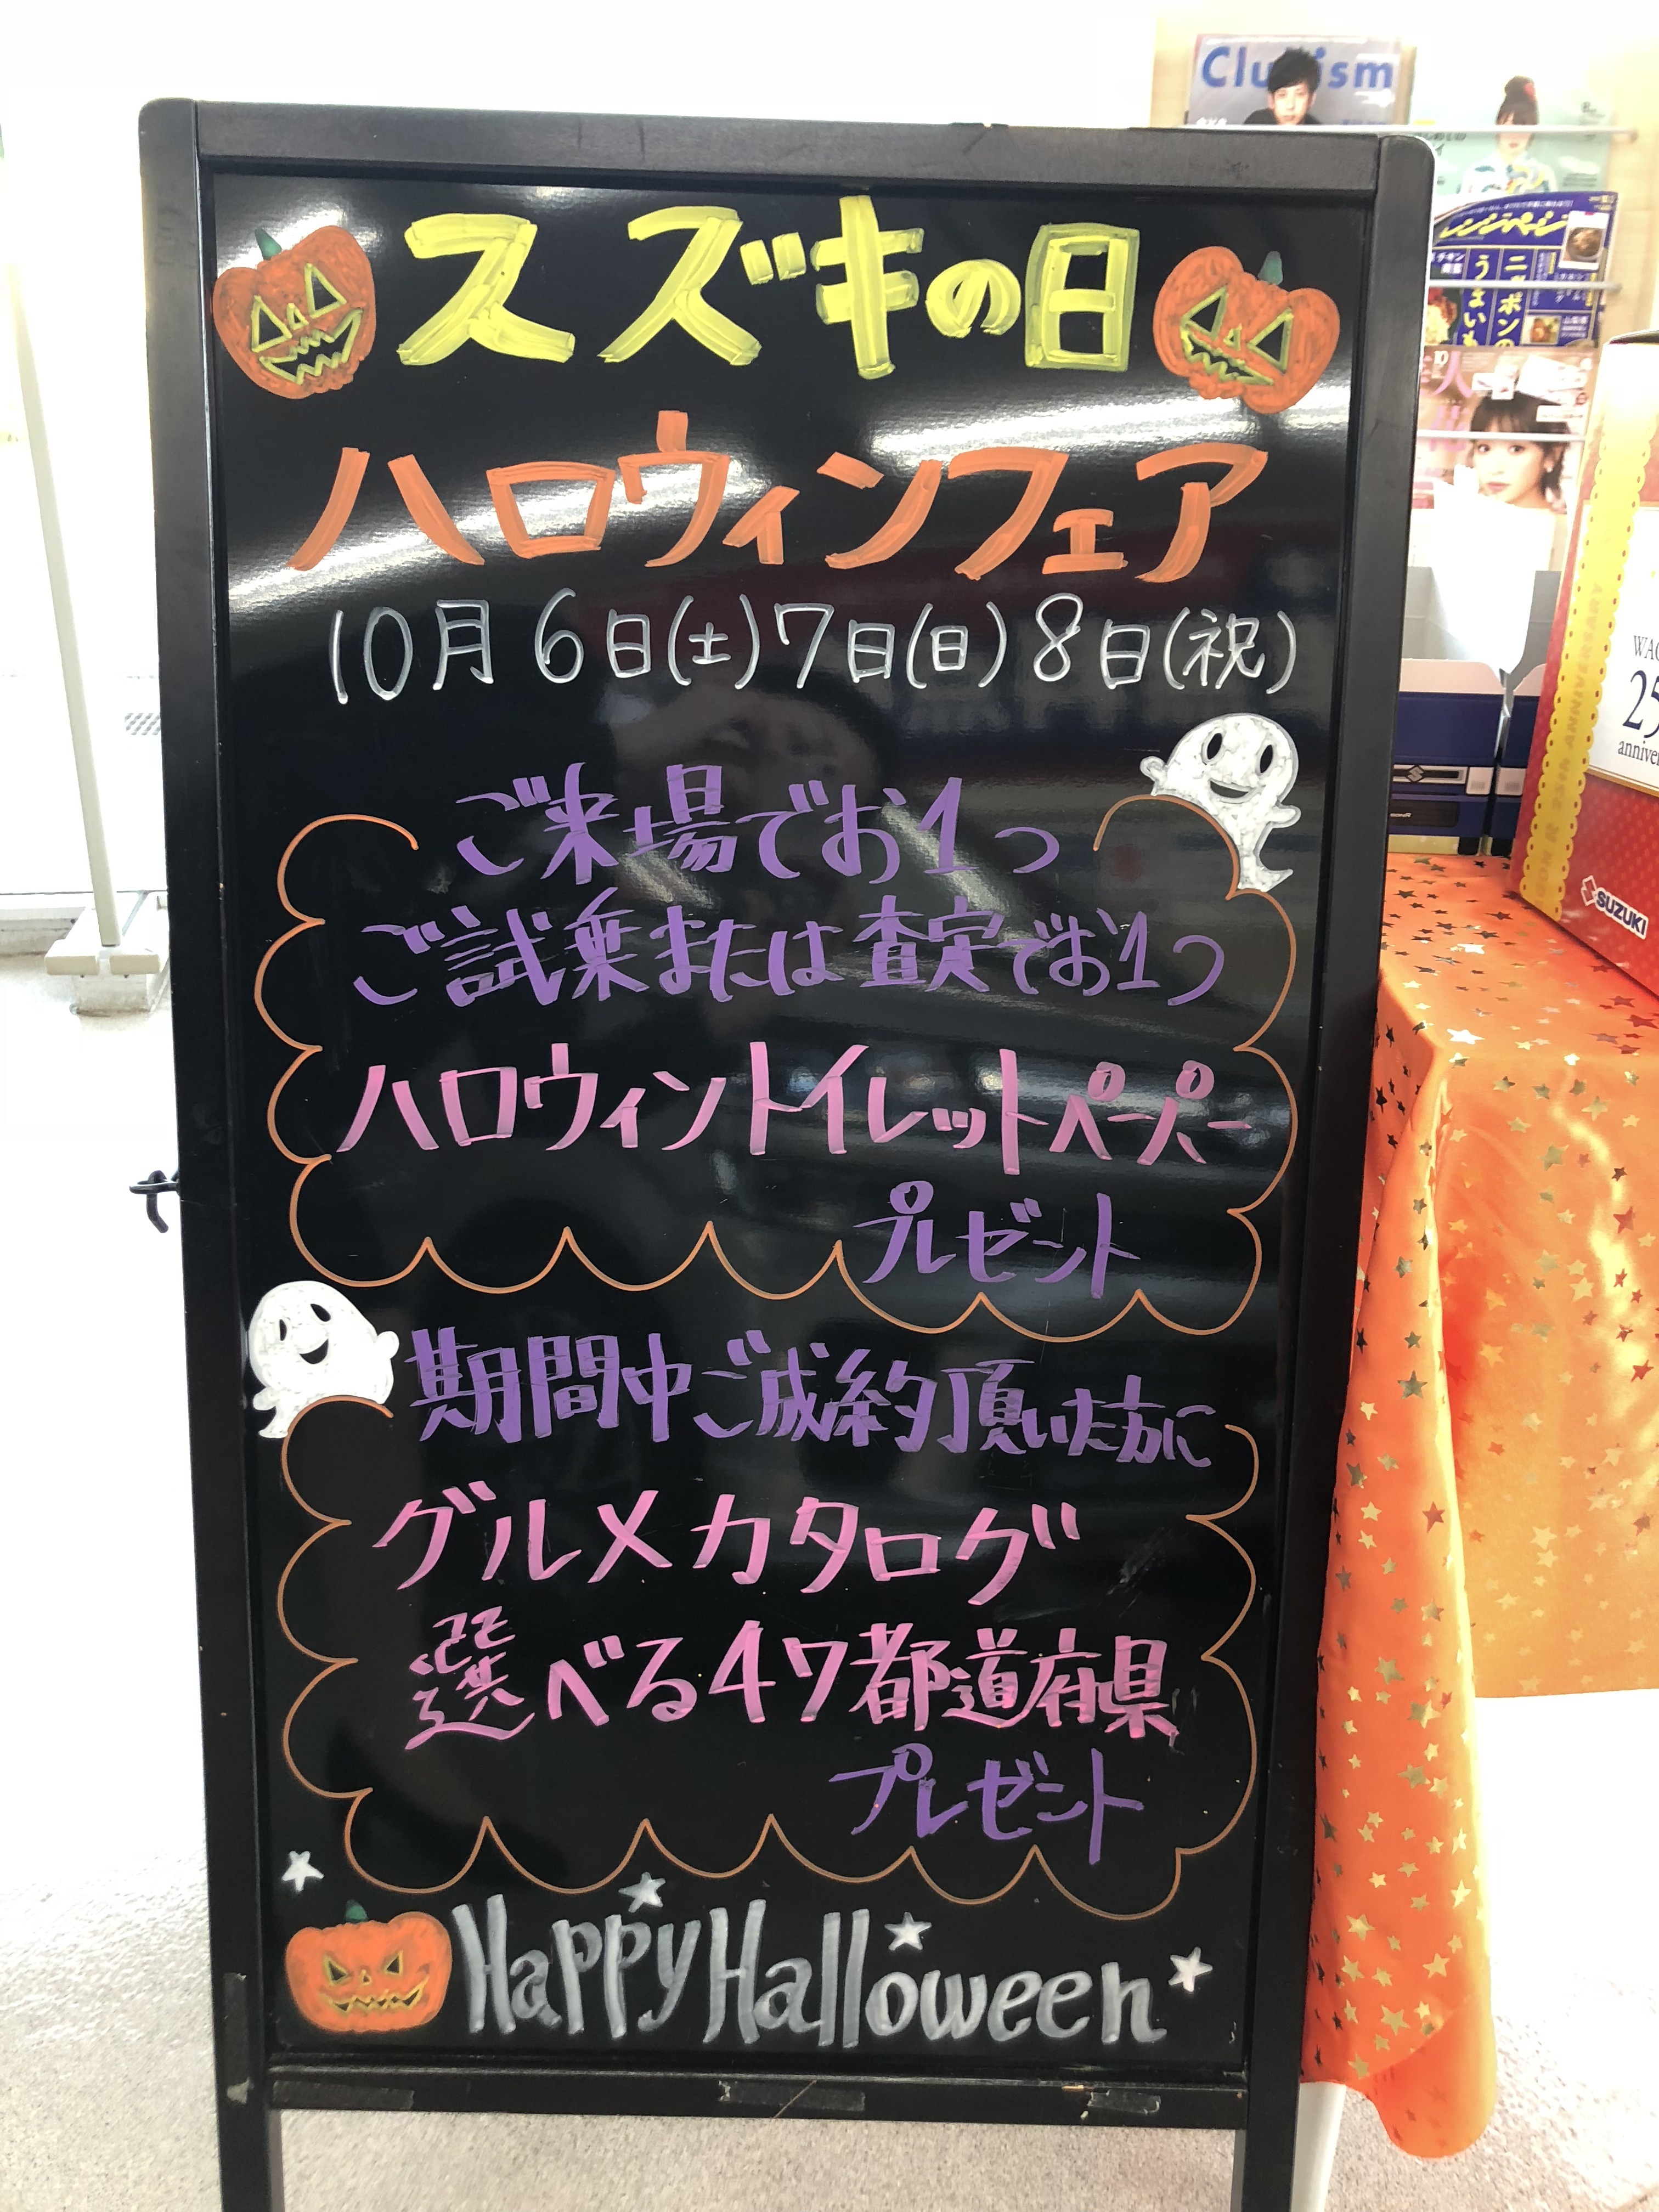 スズキの日
ハロウィンフェア
10月6日(土)7日(日)8日(祝)
ご来場でお1つ
ご試乗または査定でお1つ
ハロウィントイレットペーパー
プレゼント
期間中ご成約頂いた方に
グルメカタログ
選べる47都道府県
プレゼント
Happy Halloween
レンジページ
25
SUZUKI